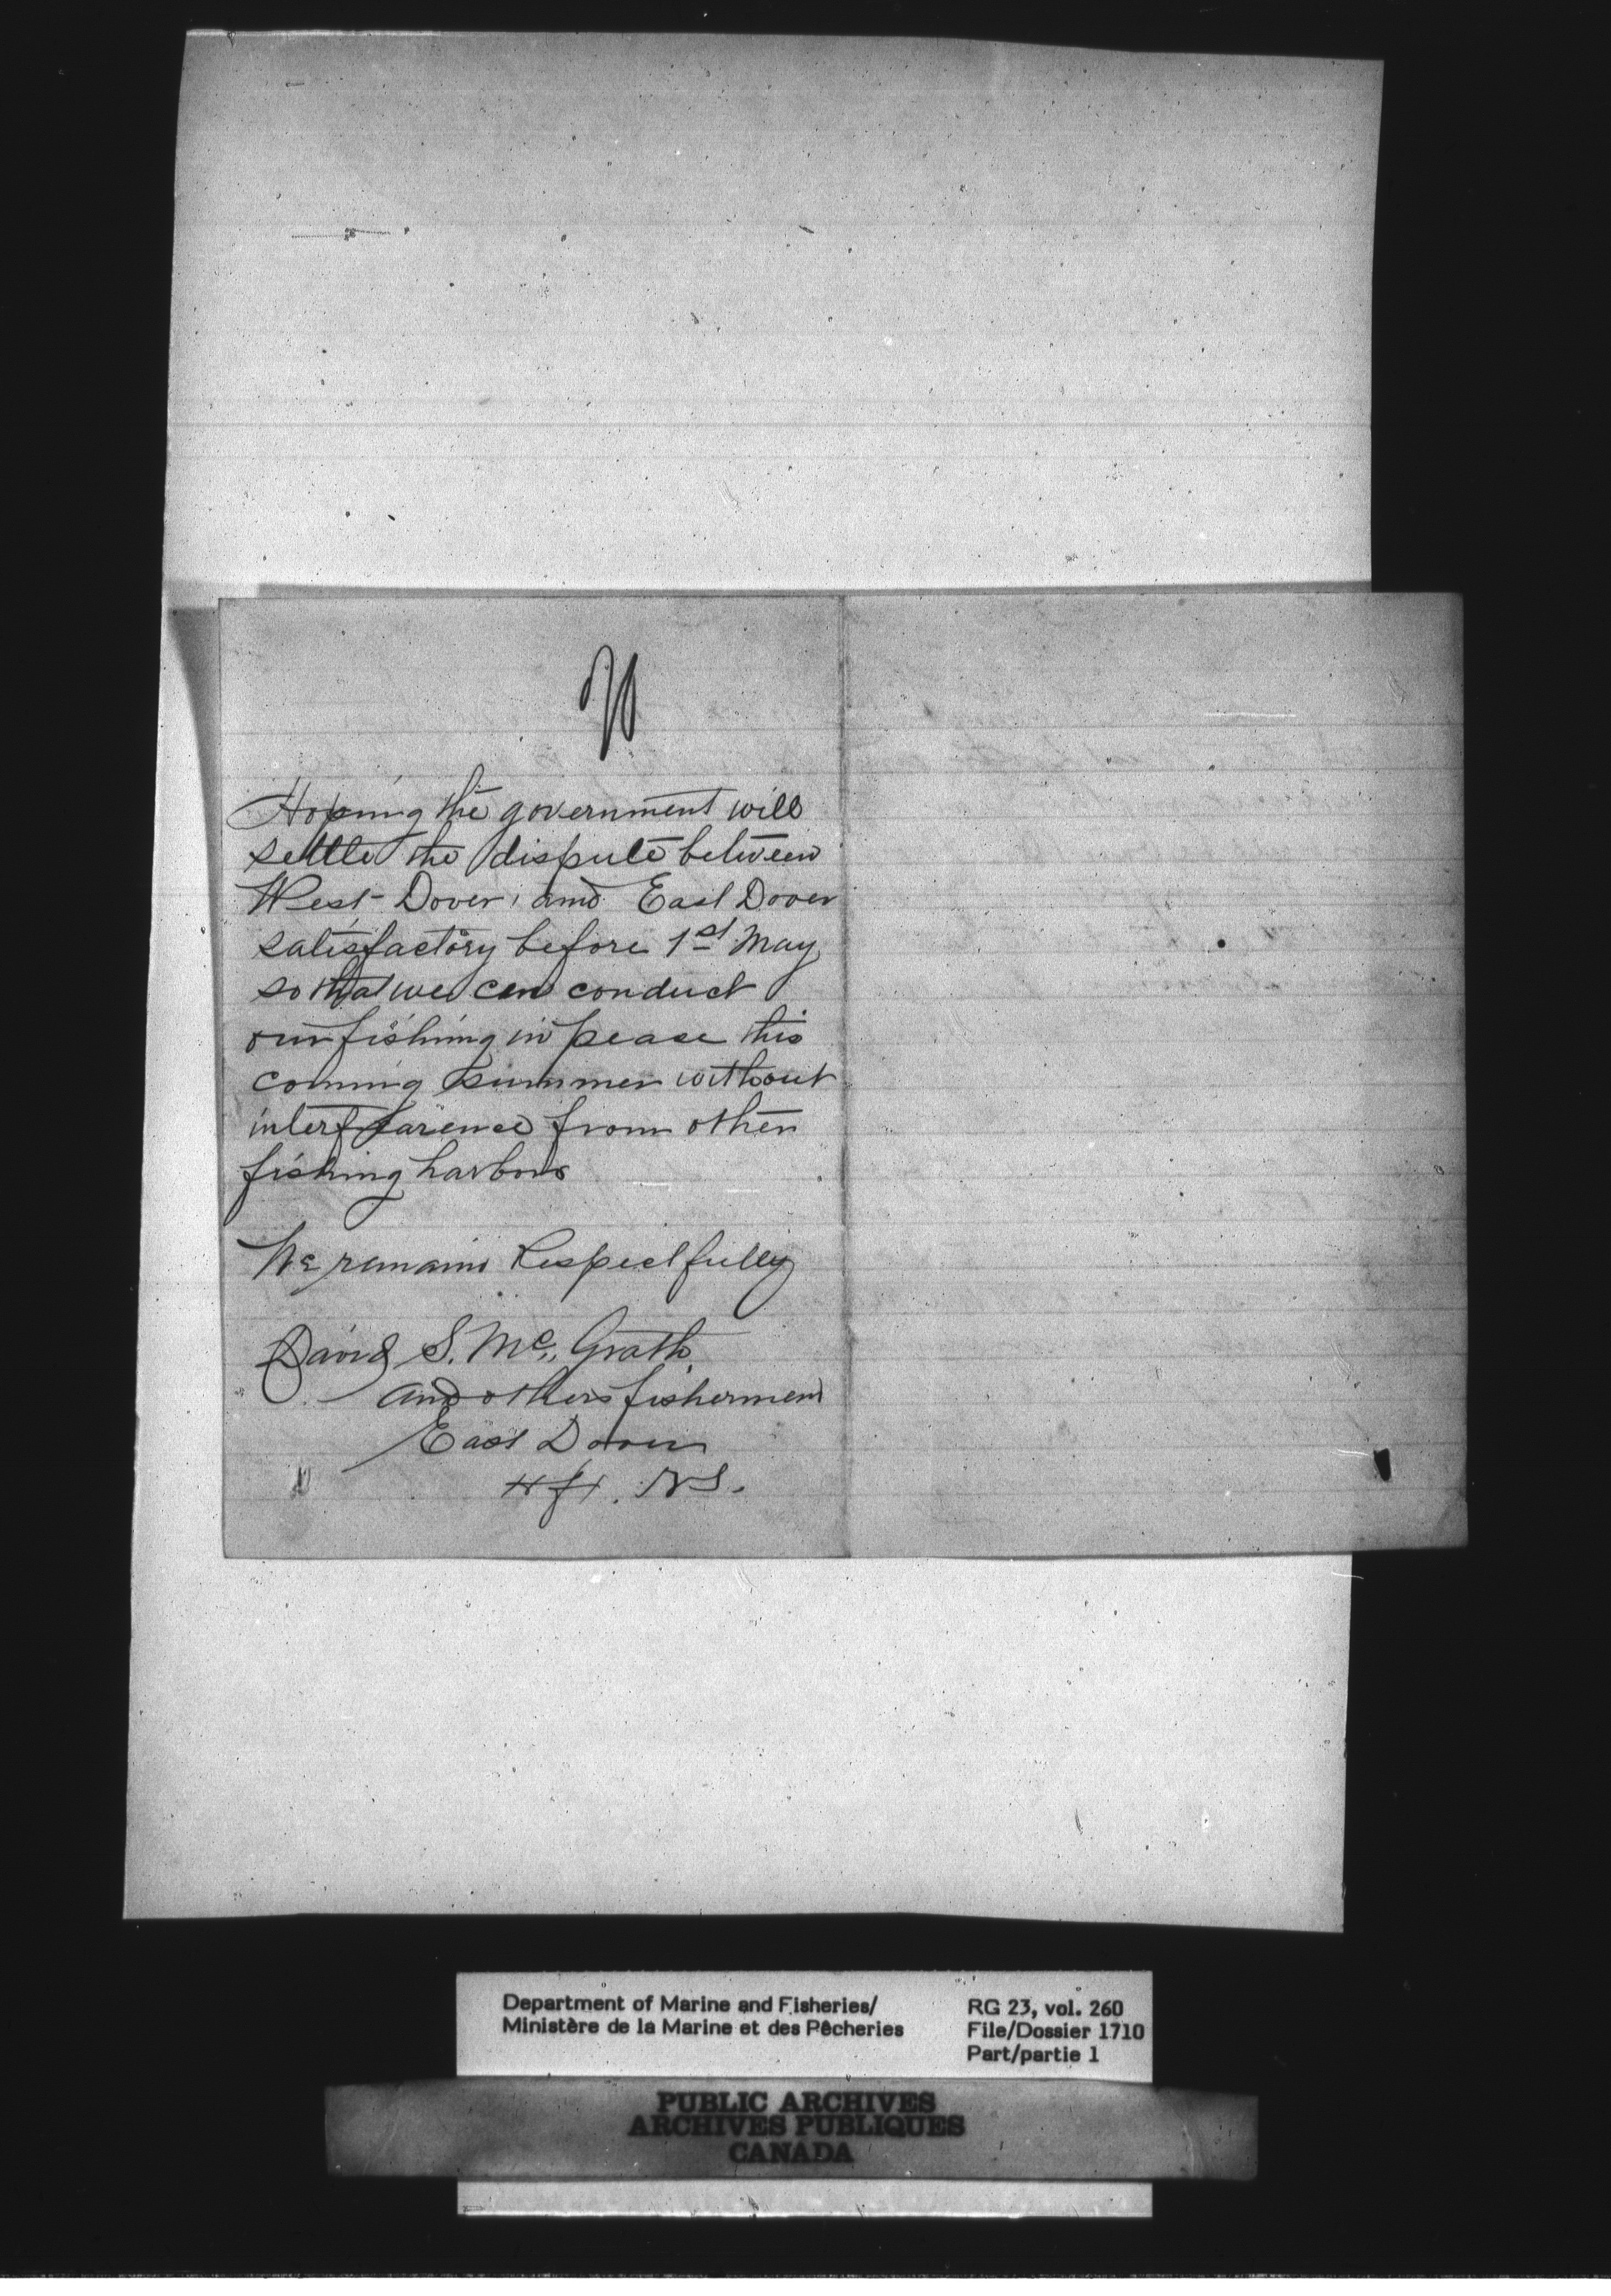 Hoping the government will
settle the dispute between
West Dover, and East Dover
satisfactory before 1st May
so tha we can conduct
our fishing in pease this
coming summer without
interfearence from other
fishing harbors
We remain Respectfully
David S. Mc Grath
and others fishermen
East Dover
Hfx. N.S.
Department of Marine and Fisheries/
Ministère de la Marine et des Pêcheries
RG 23, vol. 260
File/Dossier 1710
Part/partie 1
PUBLIC ARCHIVES
ARCHIVES PUBLIQUES
CANADA